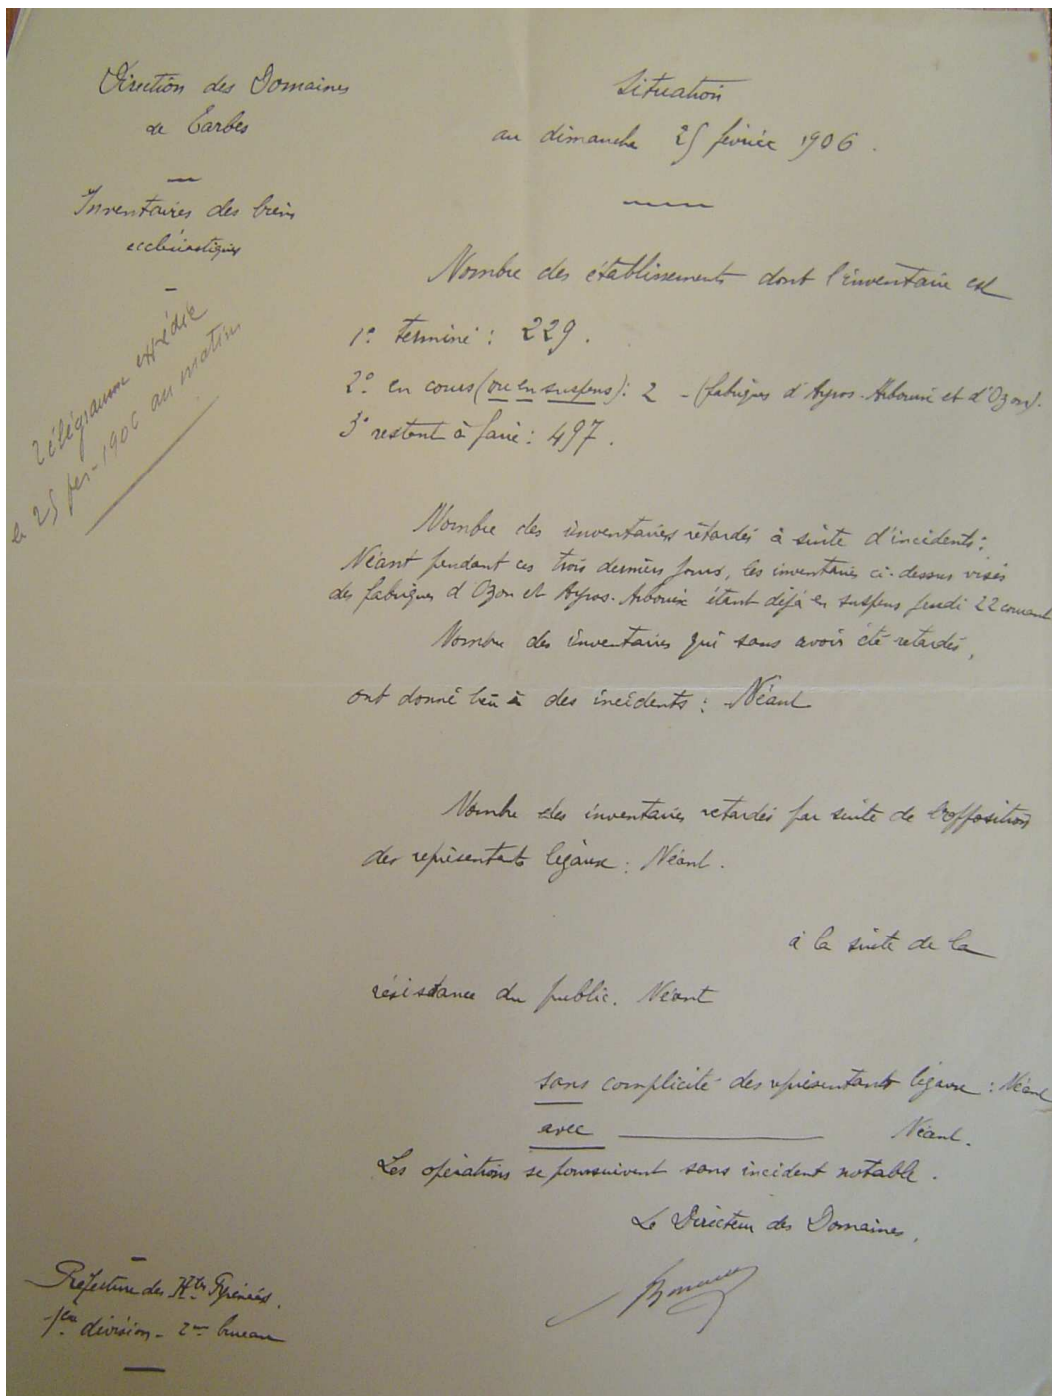 Direction des Domaines
de Tarbes
Inventaires des biens
ecclésiastiques
Télégramme expédié
le 25 fev-1906 au matin
Situation
au dimanche 25 février 1906.
Nombre des établissements dont l'inventaire est
1° terminé : 229.
2° en cours (ou en suspens) : 2 - (fabriques d'Ayros-Arbouix et d'Ozon).
3° restent à faire : 497.
Nombre des inventaires retardés à suite d'incidents :
Néant pendant ces trois derniers jours, les inventaires ci-dessus visés
des fabriques d'Ozon et Ayros-Arbouix étant déjà en suspens jeudi 22 courant
Nombre des inventaires qui sans avoir été retardés,
ont donné lieu à des incidents : Néant
Nombre des inventaires retardés par suite de l'opposition
des représentants légaux : Néant.
à la suite de la
résistance du public. Néant
sans complicité des représentants légaux : Néant
avec Néant.
Les opérations se poursuivent sans incident notable.
Le Directeur des Domaines,
Préfecture des Htes Pyrénées.
1ère division - 2me bureau